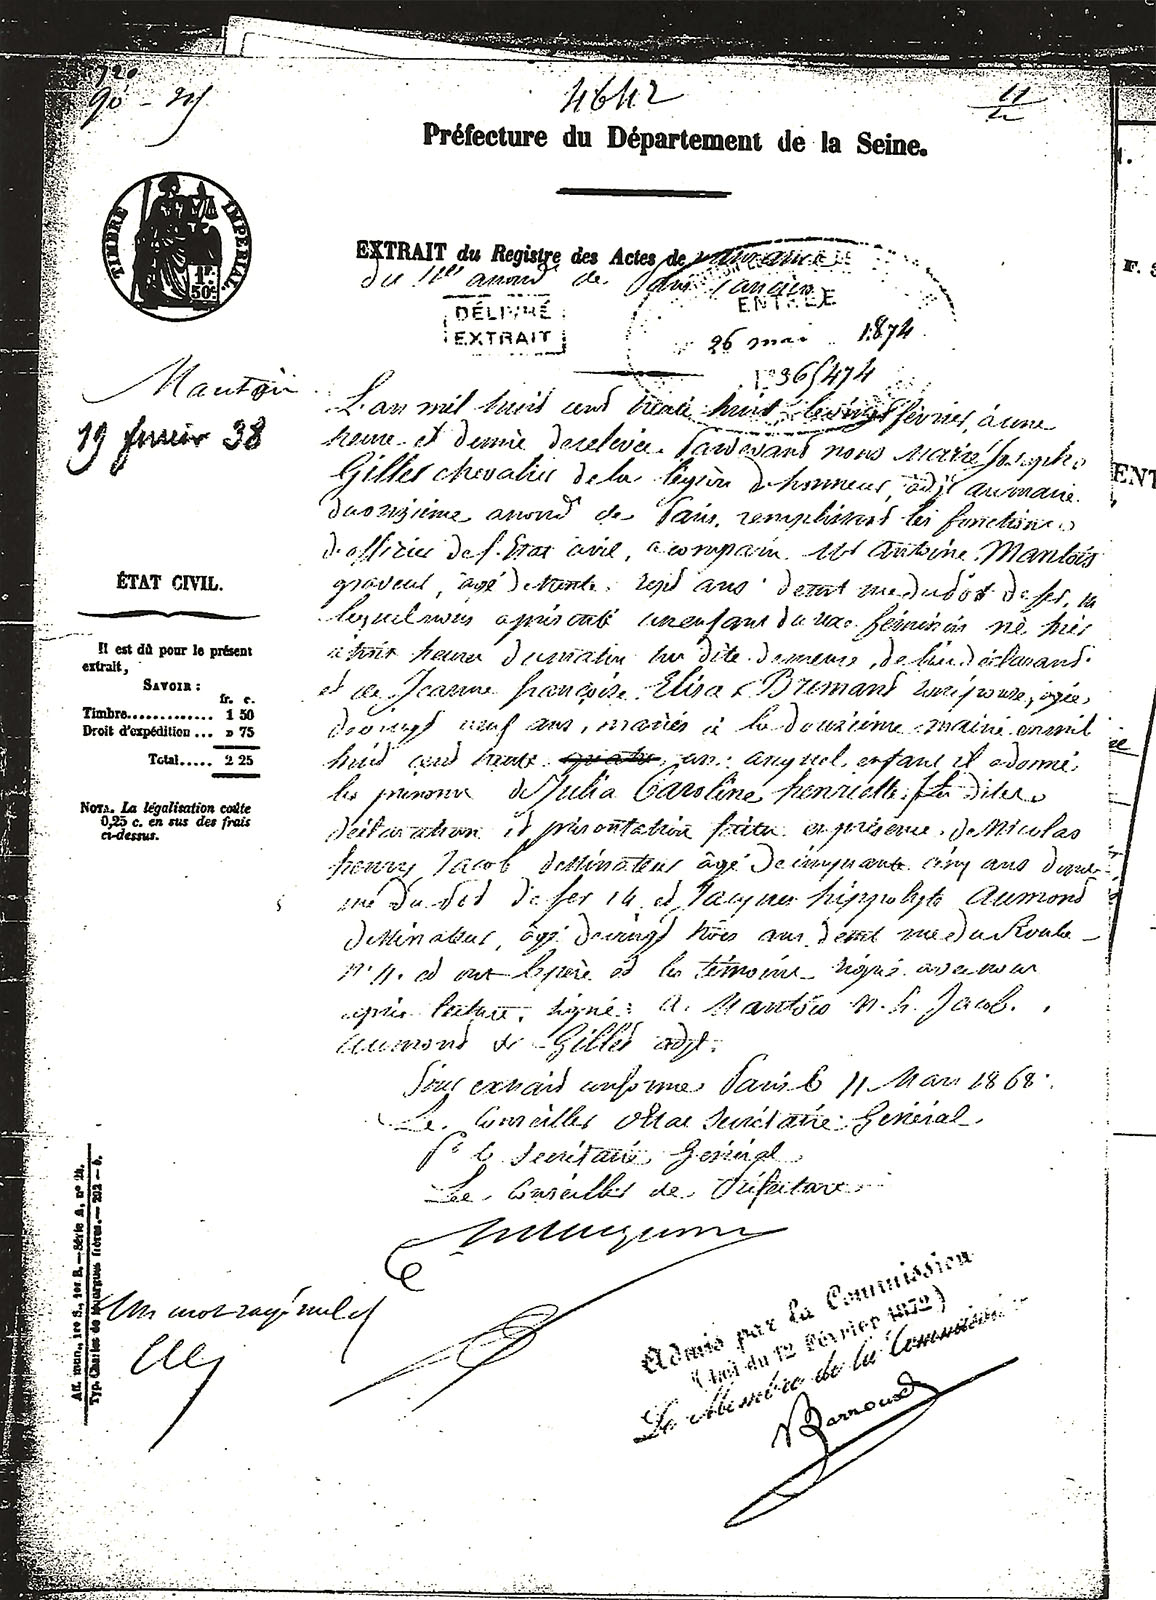 4642
Préfecture du Département de la Seine.
TIMBRE IMPÉRIAL
1f 50c
EXTRAIT du Registre des Actes de naissance
du 11e arrondt de Paris (ancien)
DÉLIVRÉ
EXTRAIT
ENTRÉE
26 mai 1874
No 365474
Mantois
19 février 38
L'an mil huit cent trente huit le vingt février, à une
heure et demie de relevée. Pardevant nous Marie Joseph
Gilles chevalier de la légion d'honneur, adjt au maire
du onzième arrondt de Paris, remplissant les fonctions
d'officier de l'Etat civil, a comparu Mr Antoine Mantois
graveur, âgé de trente sept ans demt rue du Pot de fer, 14
lequel nous a présenté un enfant du sexe féminin né hier
à trois heures du matin sur dite demeure, de lui déclarant
et de Jeanne françoise Elisa Bremant son épouse, âgée
de vingt neuf ans, mariés à la douzième mairie en mil
huit cent trente un, auquel enfant il a donné
les prénoms de Julia Caroline henriette. Les dites
déclaration et présentation faites en présence de Nicolas
henry Jacob dessinateur âgé de cinquante cinq ans demt
rue du Pot de fer 14 et Jacques hippolyte Aumont
dessinateur, âgé de vingt trois ans demt rue du Roule
no 4. et ont le père et les témoins signé avec nous
après lecture. Signé: A. Mantois N. h. Jacob.
Aumont et Gilles adjt.
Pour extrait conforme Paris le 11 Mars 1868.
Le Conseiller d'Etat Secrétaire Général
Pr le Secrétaire Général
Le Conseiller de Préfecture
ÉTAT CIVIL.
Il est dû pour le présent
extrait,
SAVOIR :
fr. c.
Timbre............. 1 50
Droit d'expédition ... » 75
Total..... 2 25
NOTA. La légalisation coûte
0,25 c. en sus des frais
ci-dessus.
Un mot rayé nul
Admis par la Commission
(Loi du 12 Février 1872)
Le Membre de la Commission
Barroux
Aff. mun., 1re S., 1er B. — Série A, nº 24.
Typ. Charles de Mourgues frères. — 292 — 6.